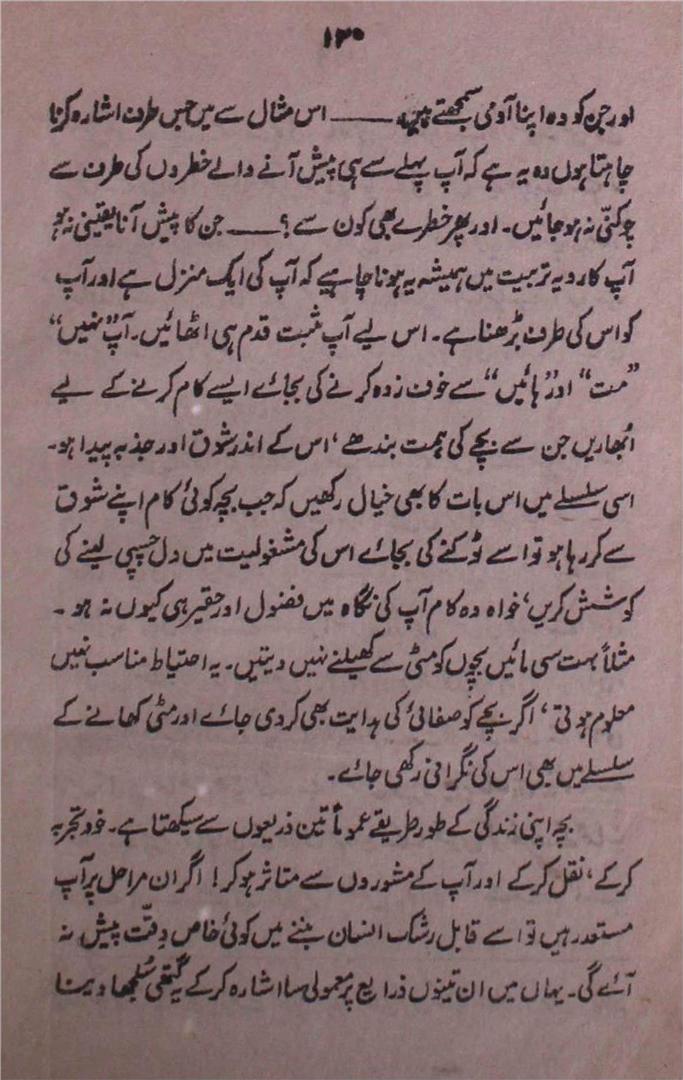 ۱۳۰
اور جن کو وہ اپنا آدمی سمجھتے ہیں ــــــ اس مثال سے میں جس طرف اشارہ کرنا
چاہتا ہوں وہ یہ ہے کہ آپ پہلے سے ہی پیش آنے والے خطروں کی طرف سے
چوکنّی نہ ہو جائیں۔ اور پھر خطرے بھی کون سے؟ ــــــ جن کا پیش آنا یقینی نہ ہو
آپ کا رویہ تربیت میں ہمیشہ یہ ہونا چاہیے کہ آپ کی ایک منزل ہے اور آپ
کو اس کی طرف بڑھنا ہے۔ اس لیے آپ مثبت قدم ہی اٹھائیں۔ آپ ”نہیں“
”مت“ اور ”ہائیں“ سے خوف زدہ کرنے کی بجائے ایسے کام کرنے کے لیے
اُبھاریں جن سے بچے کی ہمت بندھے، اس کے اندر شوق اور جذبہ پیدا ہو۔
اسی سلسلے میں اس بات کا بھی خیال رکھیں کہ جب بچہ کوئی کام اپنے شوق
سے کر رہا ہو تو اسے ٹوکنے کی بجائے اس کی مشغولیت میں دل چسپی لینے کی
کوشش کریں، خواہ وہ کام آپ کی نگاہ میں فضول اور حقیر ہی کیوں نہ ہو۔
مثلاً بہت سی مائیں بچوں کو مٹی سے کھیلنے نہیں دیتیں۔ یہ احتیاط مناسب نہیں
معلوم ہوتی، اگر بچے کو صفائی کی ہدایت بھی کر دی جائے اور مٹی کھانے کے
سلسلے میں بھی اس کی نگرانی رکھی جائے۔
بچہ اپنی زندگی کے طور طریقے عموماً تین ذریعوں سے سیکھتا ہے۔ خود تجربہ
کر کے، نقل کر کے اور آپ کے مشوروں سے متاثر ہو کر! اگر ان مراحل پر آپ
مستعد رہیں تو اسے قابل رشک انسان بننے میں کوئی خاص دقّت پیش نہ
آئے گی۔ یہاں میں ان تینوں ذرایع پر معمولی سا اشارہ کر کے یہ گتھی سُلجھا دینا